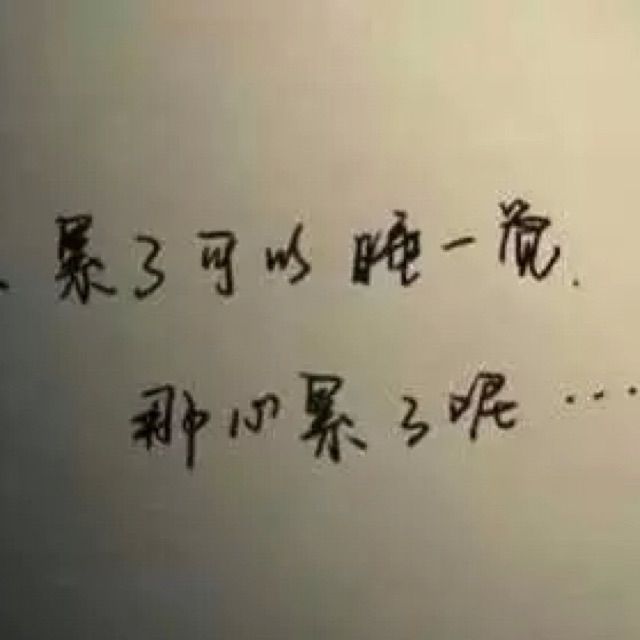 、累了可以睡一觉.
那心累了呢…